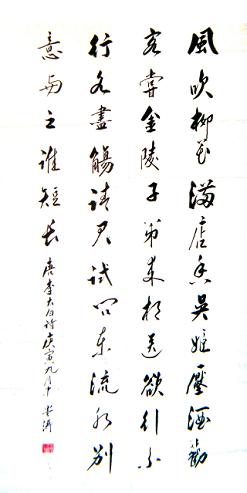 風吹柳花滿店香吳姬壓酒勸
客嘗金陵子弟來相送欲行不
行各盡觴請君試問東流水別
意与之誰短長 唐李太白詩庚寅九月